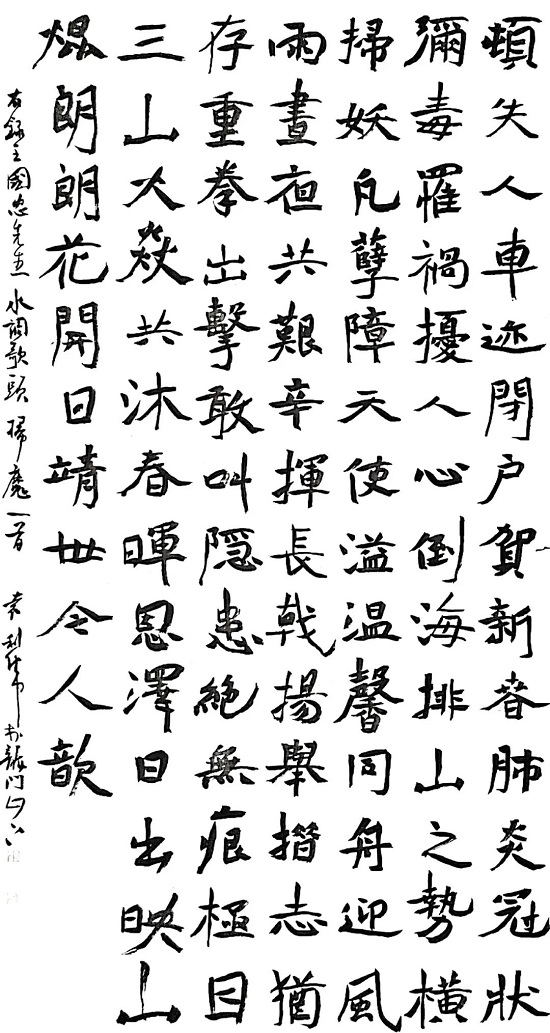 頓失人車迹閉户賀新春肺炎冠狀
彌毒罹禍擾人心倒海排山之勢橫
掃妖凡孽障天使溢温馨同舟迎風
雨晝夜共艱辛揮長戟揚舉揩志猶
存重拳出擊敢叫隐患絶無痕極目
三山火焱共沐春暉恩澤日出映山
焜朗朗花開日靖世令人歆
右錄王國忠先生水調歌頭掃魔一首
袁利